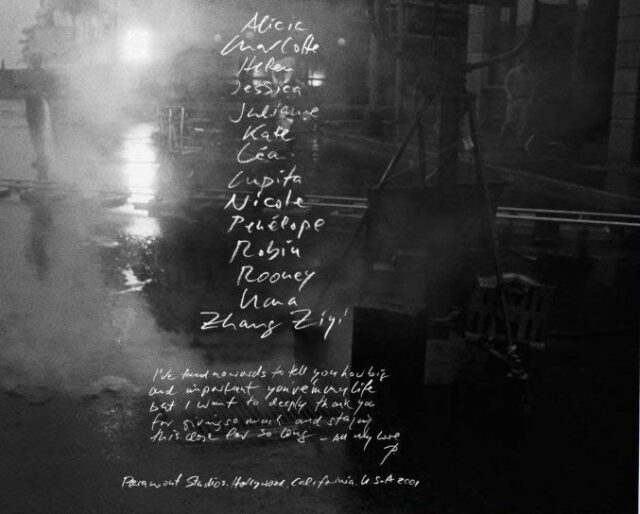 Alicia
Charlotte
Helen
Jessica
Julianne
Kate
Léa
Lupita
Nicole
Penélope
Robin
Rooney
Uma
Zhang Ziyi
I've found no words to tell you how big
and important you're in my life
but I want to deeply thank you
for giving so much and staying
this close for so long - All my love
P
Paramount Studios, Hollywood, California, USA 2001